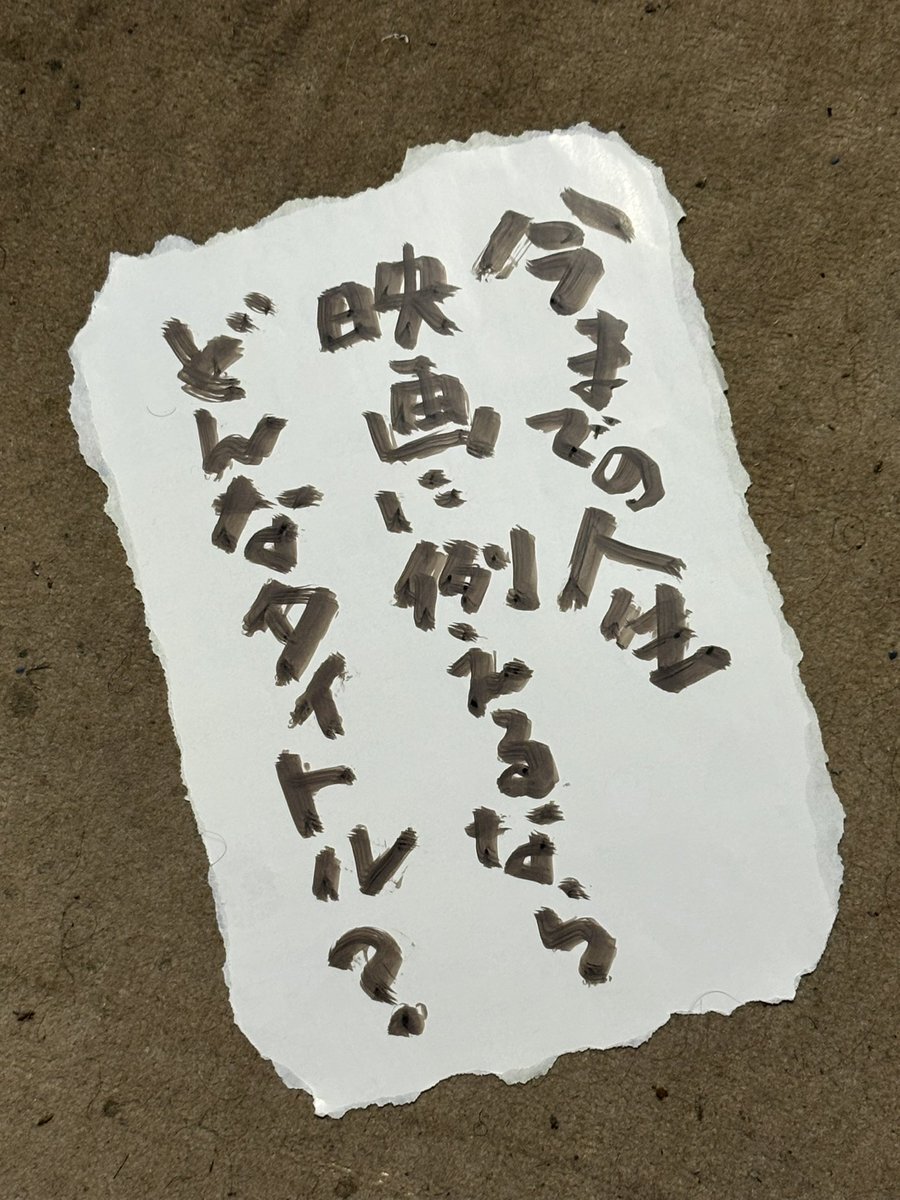 今までの人生
映画に例えるなら
どんなタイトル？